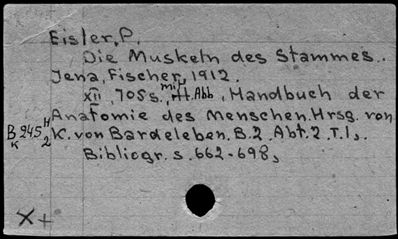 Eisler, P.
Die Muskeln des Stammes..
Jena, Fischer, 1912.
XII, 705 s. mit H. Abb., Handbuch der
Anatomie des Menschen. Hrsg. von
B 245 H
K 2
K. von Bardeleben. B. 2. Abt. 2. T. 1,.
Bibliogr. s. 662-698,
X+